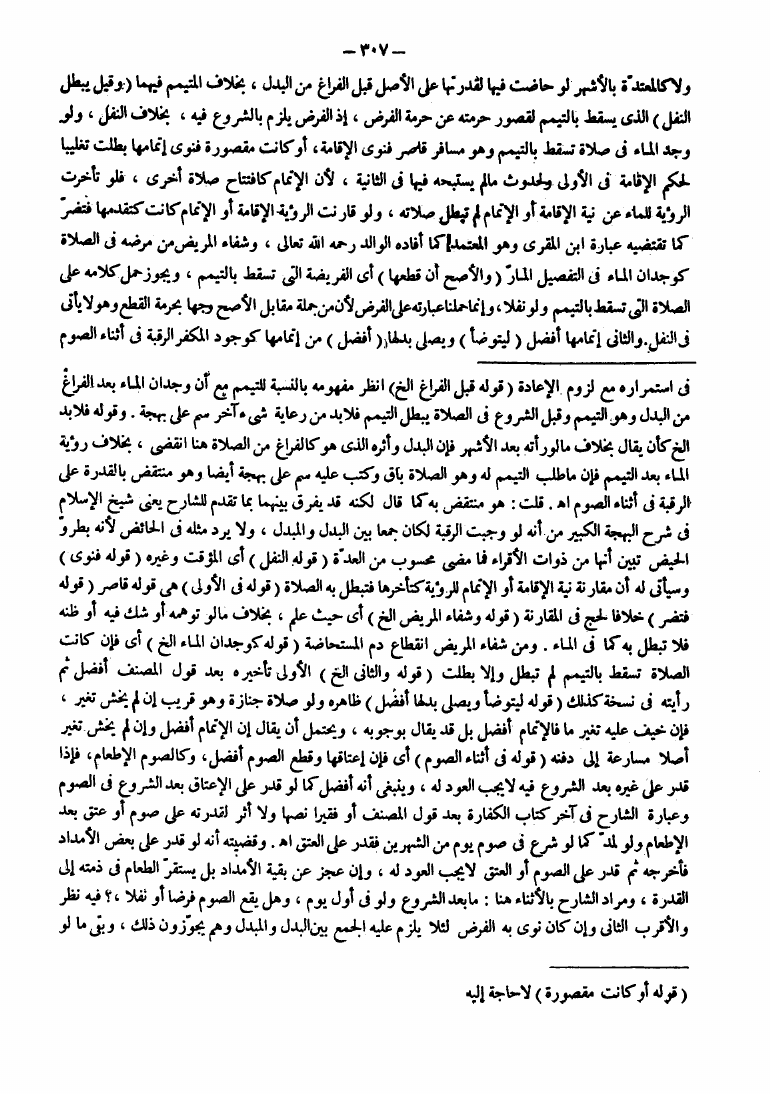 — ٣٠٧ —
ولا كالمعتدّة بالأشهر لو حاضت فيها لقدرتها على الأصل قبل الفراغ من البدل ، بخلاف المتيمم فيهما ( وقيل يبطل
النفل ) الذى يسقط بالتيمم لقصور حرمته عن حرمة الفرض ، إذ الفرض يلزم بالشروع فيه ، بخلاف النفل ، ولو
وجد الماء فى صلاة تسقط بالتيمم وهو مسافر قاصر فنوى الإقامة ، أو كانت مقصورة فنوى إتمامها بطلت تغليبا
لحكم الإقامة فى الأولى ولحدوث مالم يستبحه فيها فى الثانية ، لأن الإتمام كافتتاح صلاة أخرى ، فلو تأخرت
الرؤية للماء عن نية الإقامة أو الإتمام لم تبطل صلاته ، ولو قارنت الرؤية الإقامة أو الإتمام كانت كتقدمها فتضرّ
كما تقتضيه عبارة ابن المقرى وهو المعتمد كما أفاده الوالد رحمه الله تعالى ، وشفاء المريض من مرضه فى الصلاة
كوجدان الماء فى التفصيل المارّ ( والأصح أن قطعها ) أى الفريضة التى تسقط بالتيمم ، ويجوز حمل كلامه على
الصلاة التى تسقط بالتيمم ولو نفلا ، وإنما حملنا عبارته على الفرض لأن من جملة مقابل الأصح وجها بحرمة القطع وهو لا يأتى
فى النفل . والثانى إتمامها أفضل ( ليتوضأ ) ويصلى بدلها ( أفضل ) من إتمامها كوجود المكفر الرقبة فى أثناء الصوم
فى استمراره مع لزوم الإعادة ( قوله قبل الفراغ الخ ) انظر مفهومه بالنسبة للتيمم مع أن وجدان الماء بعد الفراغ
من البدل وهو التيمم وقبل الشروع فى الصلاة يبطل التيمم فلابد من رعاية شىء آخر سم على بهجة . وقوله فلابد
الخ كأن يقال بخلاف مالو رأته بعد الأشهر فإن البدل وأثره الذى هو كالفراغ من الصلاة هنا انقضى ، بخلاف رؤية
الماء بعد التيمم فإن ماطلب التيمم له وهو الصلاة باق وكتب عليه سم على بهجة أيضا وهو منتقض بالقدرة على
الرقبة فى أثناء الصوم اهـ . قلت : هو منتقض به كما قال لكنه قد يفرق بينهما بما تقدم للشارح يعنى شيخ الإسلام
فى شرح البهجة الكبير من أنه لو وجبت الرقبة لكان جمعا بين البدل والمبدل ، ولا يرد مثله فى الحائض لأنه بطروّ
الحيض تبين أنها من ذوات الأقراء فما مضى محسوب من العدّة ( قوله النفل ) أى المؤقت وغيره ( قوله فنوى )
وسيأتى له أن مقارنة نية الإقامة أو الإتمام للرؤية كتأخرها فتبطل به الصلاة ( قوله فى الأولى ) هى قوله قاصر ( قوله
فتضر ) خلافا لحج فى المقارنة ( قوله وشفاء المريض الخ ) أى حيث علم ، بخلاف مالو توهمه أو شك فيه أو ظنه
فلا تبطل به كما فى الماء . ومن شفاء المريض انقطاع دم المستحاضة ( قوله كوجدان الماء الخ ) أى فإن كانت
الصلاة تسقط بالتيمم لم تبطل وإلا بطلت ( قوله والثانى الخ ) الأولى تأخيره بعد قول المصنف أفضل ثم
رأيته فى نسخة كذلك ( قوله ليتوضأ ويصلى بدلها أفضل ) ظاهره ولو صلاة جنازة وهو قريب إن لم يخش تغير ،
فإن خيف عليه تغير ما فالإتمام أفضل بل قد يقال بوجوبه ، ويحتمل أن يقال إن الإتمام أفضل وإن لم يخش تغير
أصلا مسارعة إلى دفنه ( قوله فى أثناء الصوم ) أى فإن إعتاقها وقطع الصوم أفضل ، وكالصوم الإطعام ، فإذا
قدر على غيره بعد الشروع فيه لايجب العود له ، وينبغى أنه أفضل كما لو قدر على الإعتاق بعد الشروع فى الصوم
وعبارة الشارح فى آخر كتاب الكفارة بعد قول المصنف أو فقيرا نصها ولا أثر لقدرته على صوم أو عتق بعد
الإطعام ولو لمدّ كما لو شرع فى صوم يوم من الشهرين فقدر على العتق اهـ . وقضيته أنه لو قدر على بعض الأمداد
فأخرجه ثم قدر على الصوم أو العتق لايجب العود له ، وإن عجز عن بقية الأمداد بل يستقرّ الطعام فى ذمته إلى
القدرة ، ومراد الشارح بالأثناء هنا : مابعد الشروع ولو فى أول يوم ، وهل يقع الصوم فرضا أو نفلا ،؟ فيه نظر
والأقرب الثانى وإن كان نوى به الفرض لئلا يلزم عليه الجمع بين البدل والمبدل وهم يجوّزون ذلك ، وبقى ما لو
( قوله أو كانت مقصورة ) لاحاجة إليه